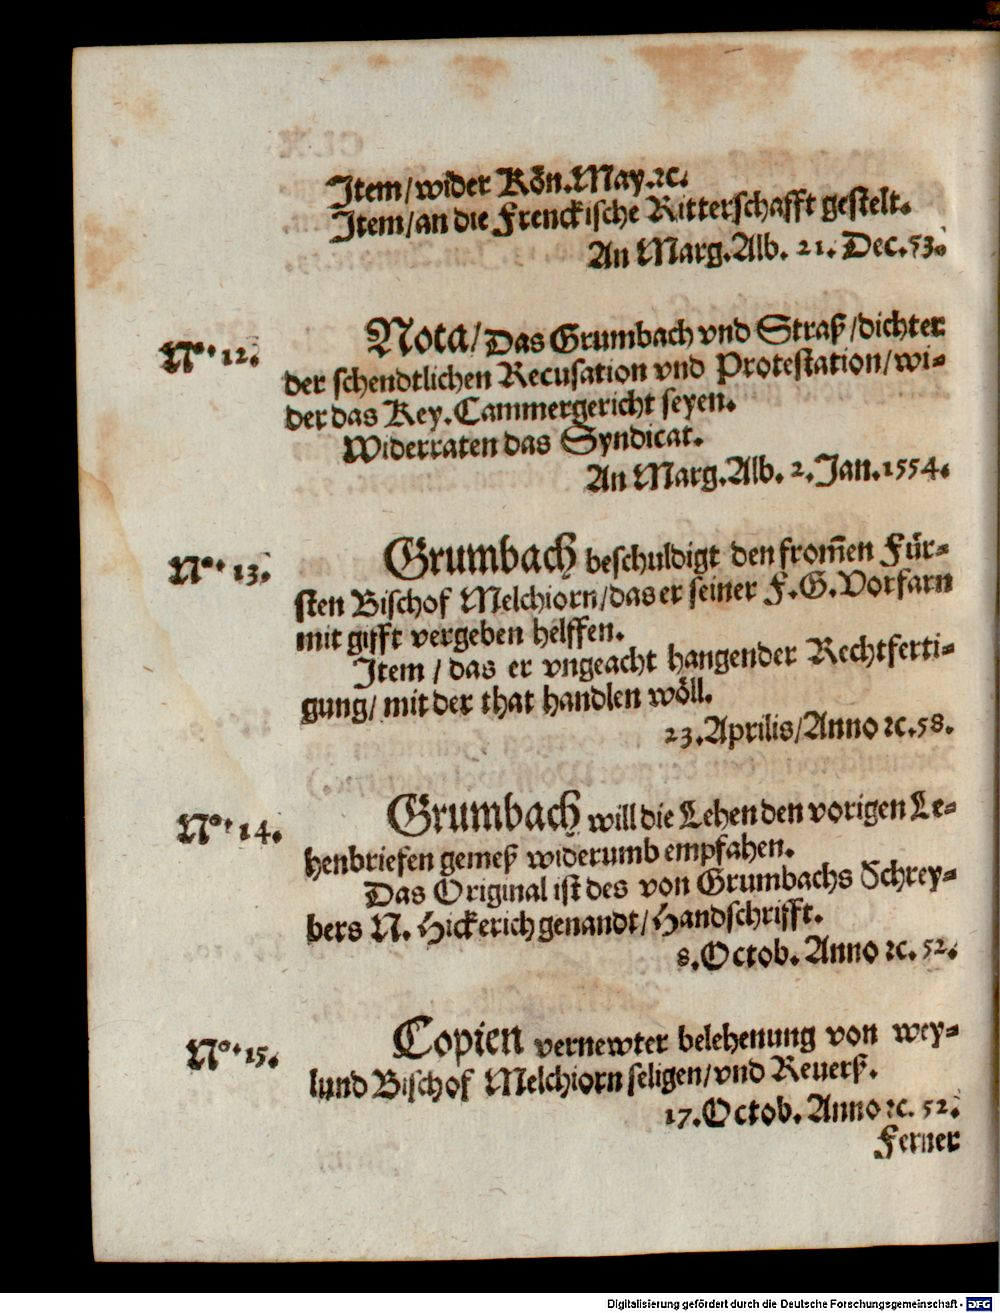 Item/wider Kön.May.ꝛc.
Item/an die Frenckische Ritterschafft gestelt.
An Marg.Alb. 21. Dec.53.
No. 12. Nota/Das Grumbach vnd Straß/dichter
der schendtlichen Recusation vnd Protestation/wi-
der das Key.Cammergericht seyen.
Widerraten das Syndicat.
An Marg.Alb. 2.Jan.1554.
No. 13. Grumbach beschuldigt den from̄en Für-
sten Bischof Melchiorn/das er seiner F.G.Vorfarn
mit gifft vergeben helffen.
Item / das er vngeacht hangender Rechtferti-
gung/ mit der that handlen wöll.
23.Aprilis/Anno ꝛc.58.
No. 14. Grumbach will die Lehen den vorigen Le-
henbriefen gemeß widerumb empfahen.
Das Original ist des von Grumbachs Schrey-
bers N. Hickerich genandt/Handschrifft.
8.Octob. Anno ꝛc. 52.
No. 15. Copien vernewter belehenung von wey-
lund Bischof Melchiorn seligen/vnd Reuerß.
17.Octob. Anno ꝛc. 52.
Ferner
Digitalisierung gefördert durch die Deutsche Forschungsgemeinschaft - DFG